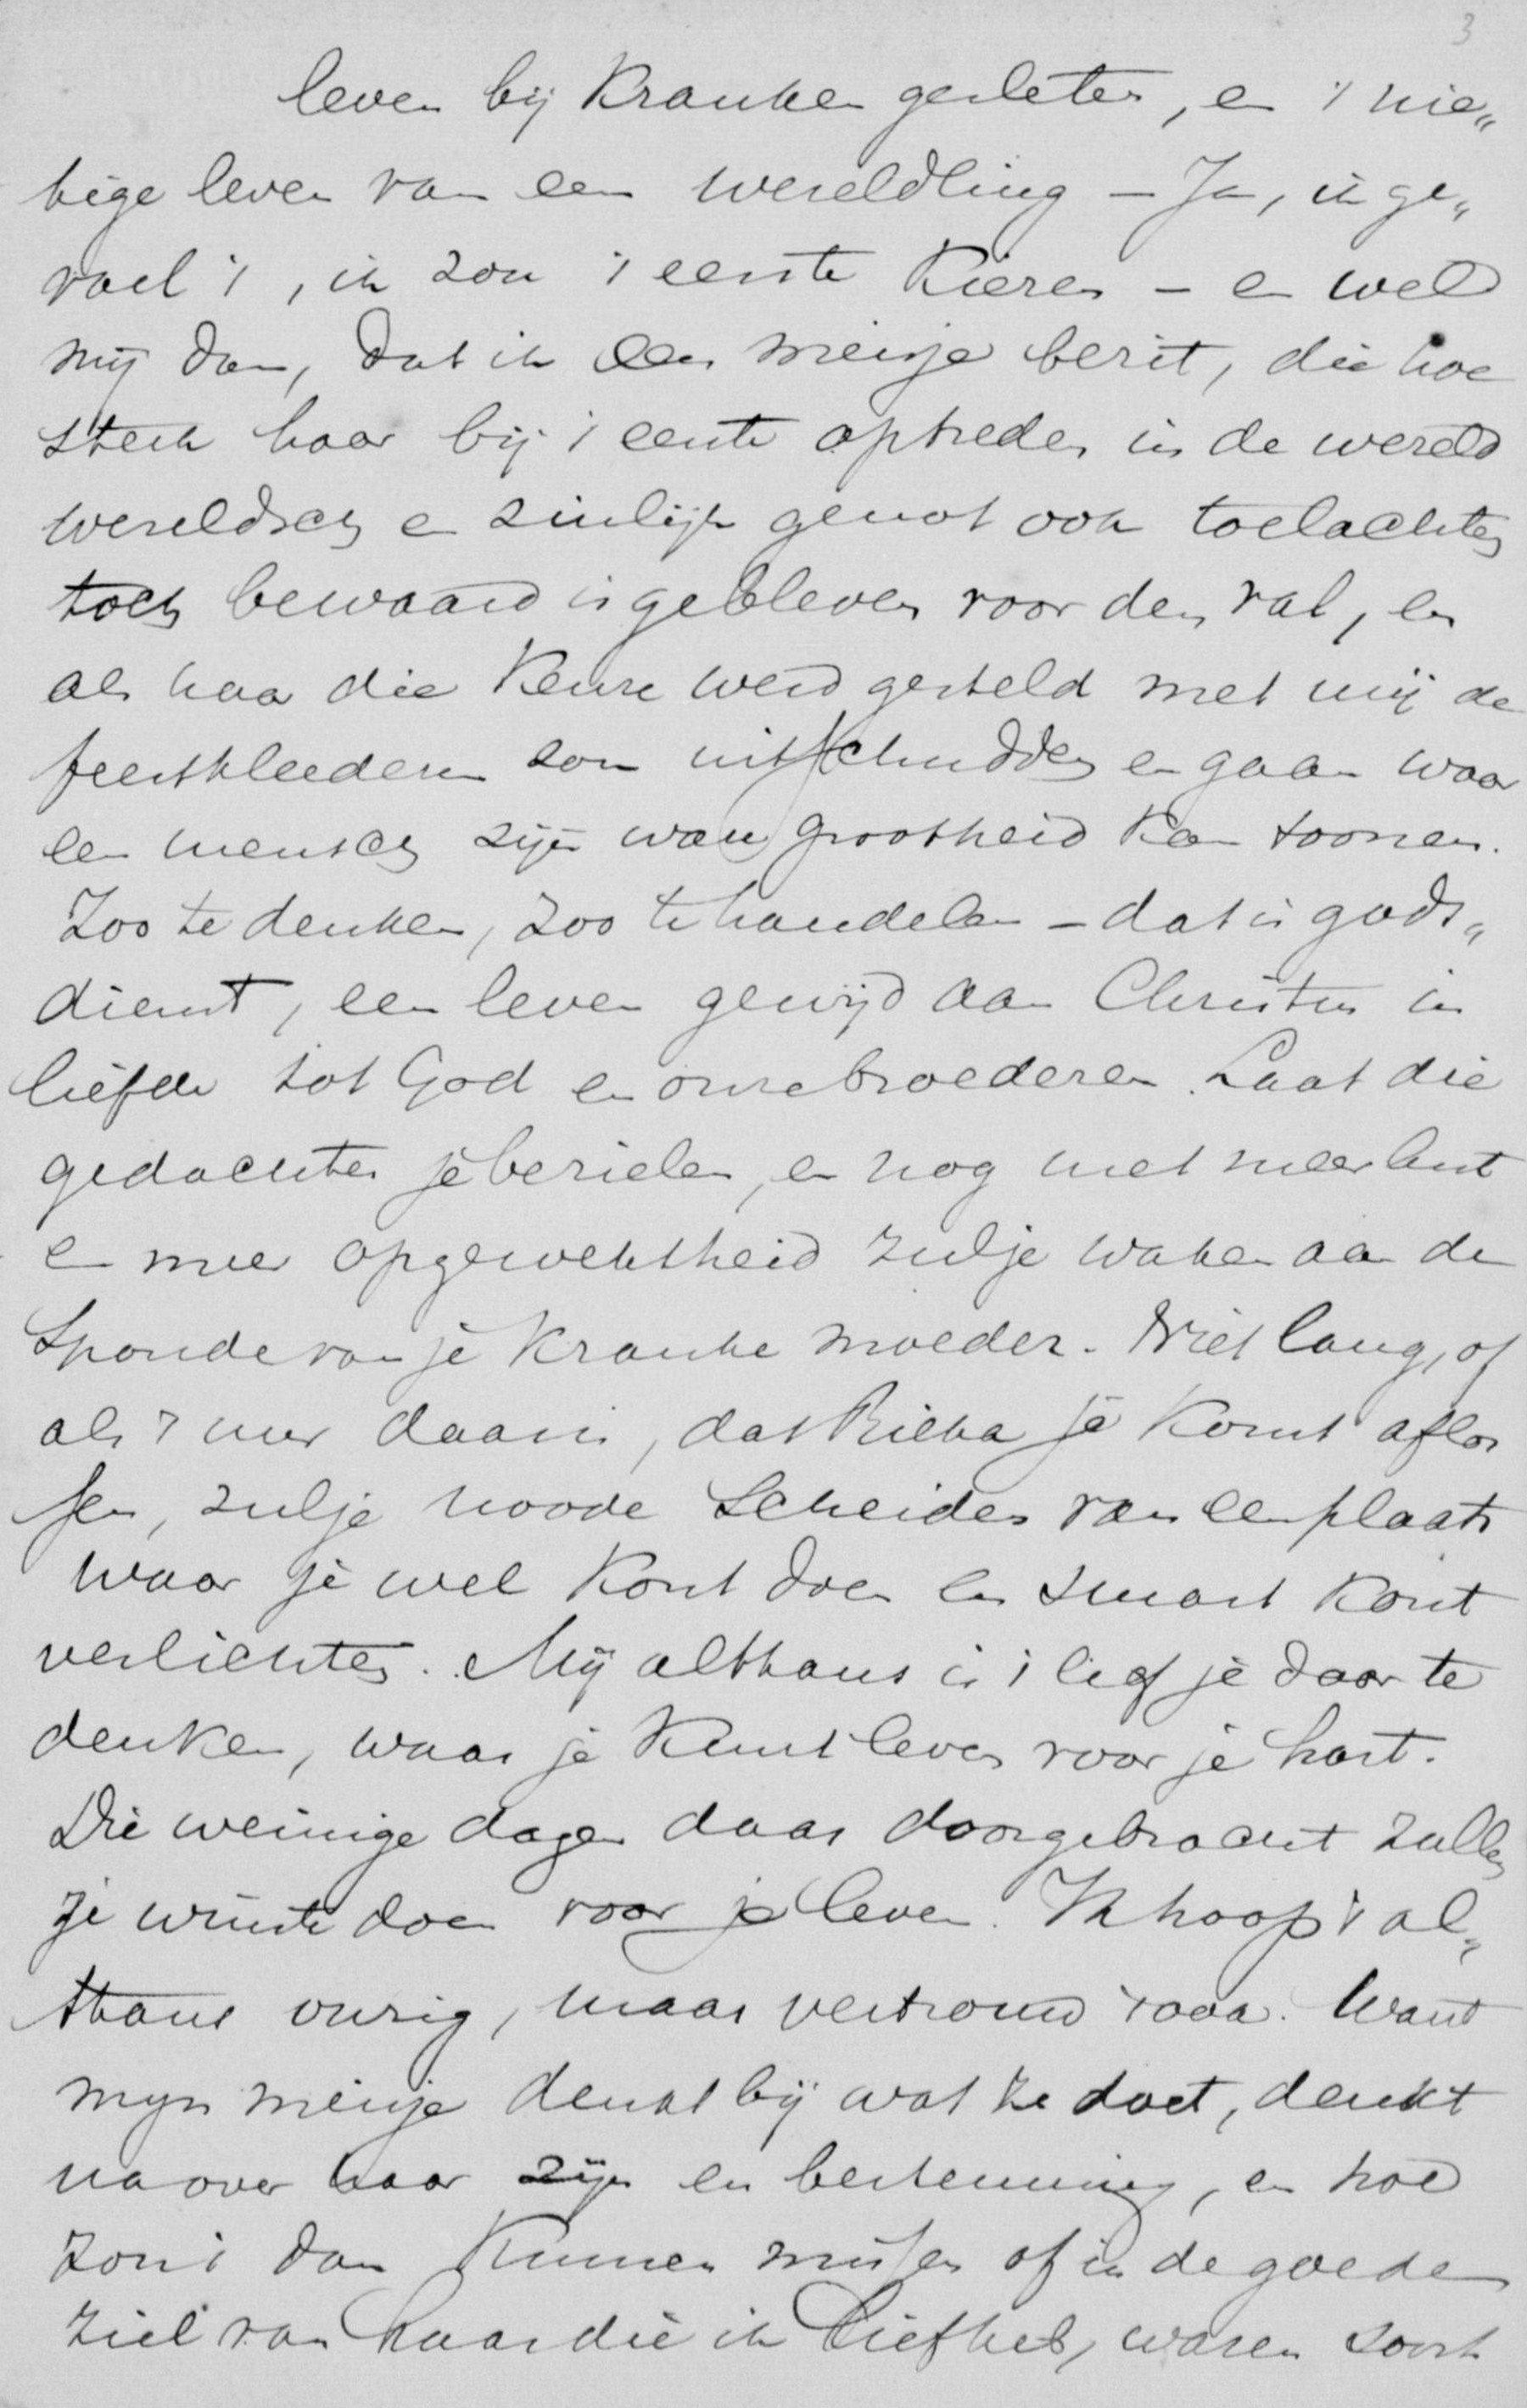 3
leven bij kranken gesleten, en 't nie„
tige leven van een wereldling – Ja, ik ge„
voel 't, ik zou 't eerste kiezen – en wel
mij dan, dat ik een meisje bezit, die hoe
sterk haar bij 't eerste optreden in de wereld
wereldsch en zinlijk genot ook toelachten
toch bewaard is gebleven voor den val, en
als haar die keuze werd gesteld met mij de
feestkleederen zou uitschudden en gaan waar
een mensch zijn ware grootheid kan toonen.
Zoo te denken, zoo te handelen – dat is gods„
dienst, een leven gewijd aan Christus in
liefde tot God en onze broederen. Laat die
gedachten je bezielen, en nog met meer lust
en meer opgewektheid zul je waken aan de
sponde van je kranke moeder. Niet lang, of
als 't uur daar is, dat Rika je komt aflos
sen, zul je noode scheiden van een plaats
waar je wel kont doen en smart kont
verlichten. Mij althans is 't lief je daar te
denken, waar je kunt leven voor je hart.
Die weinige dagen daar doorgebracht zullen
je winste doen voor je leven. Ik hoop 't al„
thans vurig, maar vertrouw 't ook. Want
mijn meisje denkt bij wat ze doet, denkt
na over haar zijn en bestemming, en hoe
zou 't dan kunnen missen of in de goede
ziel van haar die ik liefheb, waren soort